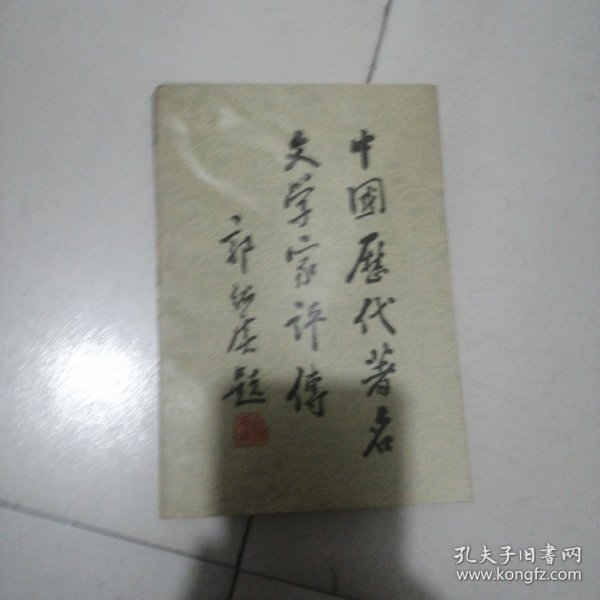 中國歷代著名
文学家评傳
郭紹虞題
孔夫子旧書网
www.kongfz.com